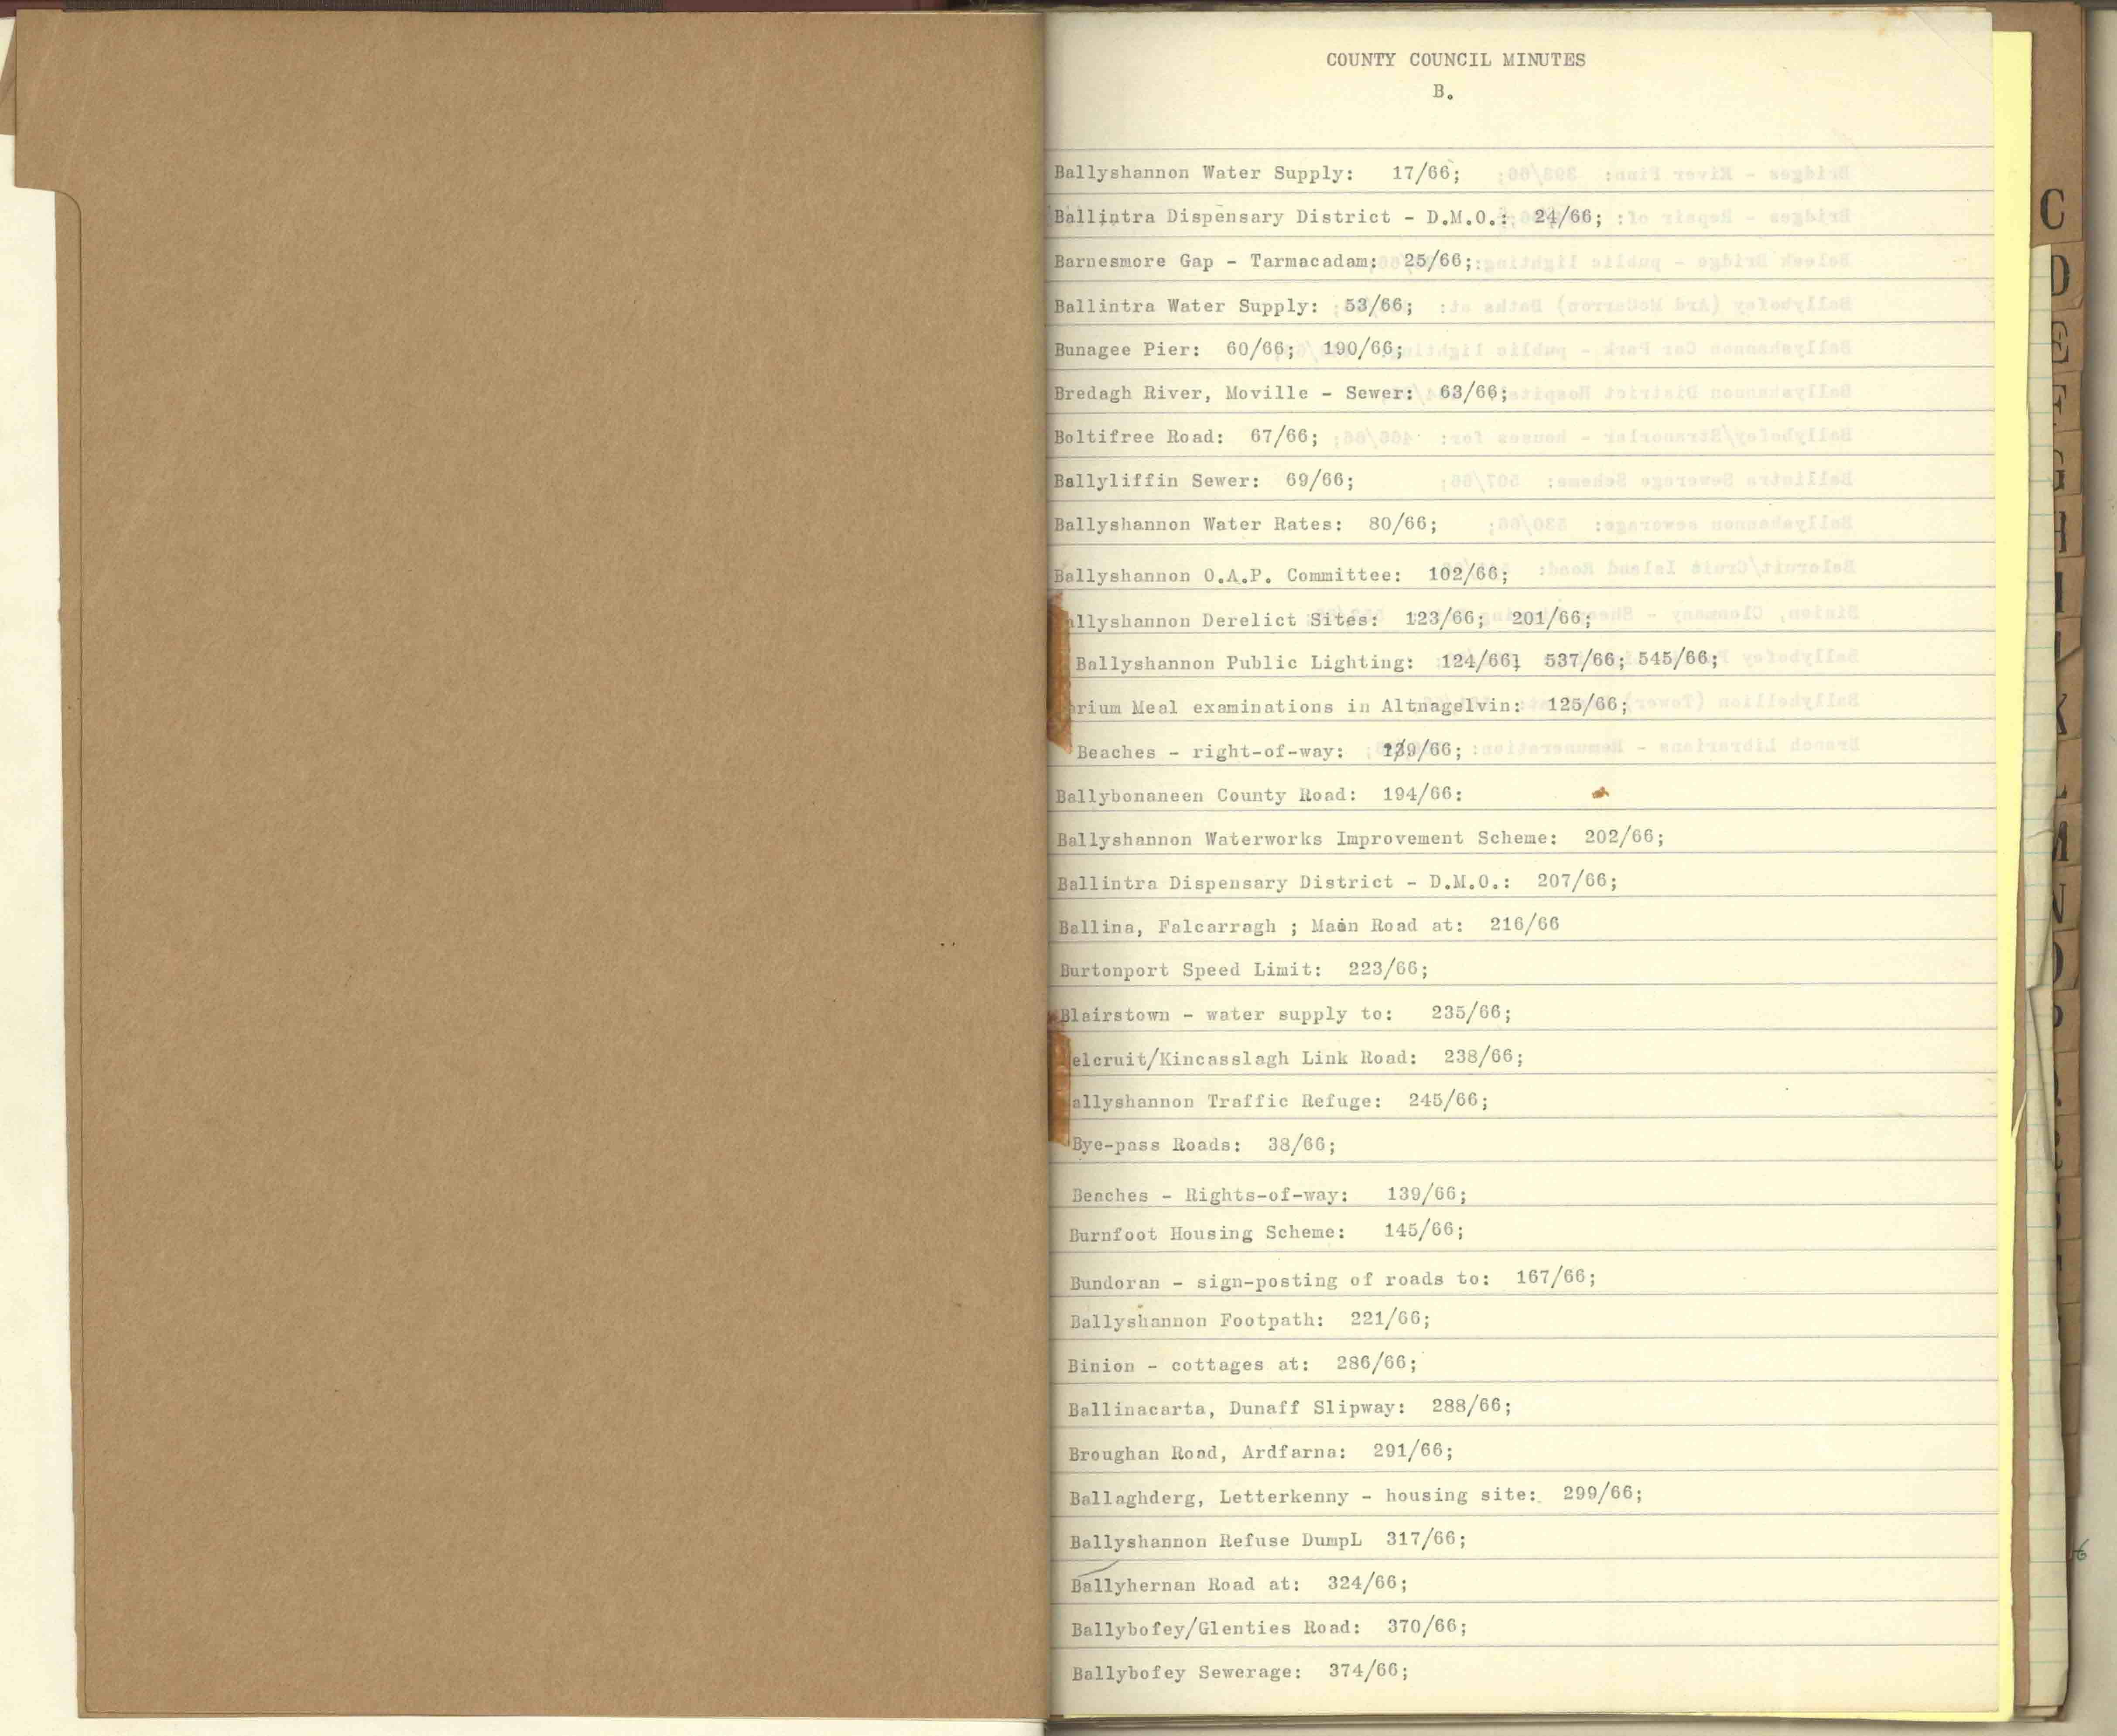 COUNTY COUNCIL MINUTES
B.
Ballyshannon Water Supply: 17/66;
Ballintra Dispensary District - D.M.O.: 24/66;
Barnesmore Gap - Tarmacadam: 25/66;
Ballintra Water Supply: 53/66;
Bunagee Pier: 60/66; 190/66;
Bredagh River, Moville - Sewer: 63/66;
Boltifree Road: 67/66;
Ballyliffin Sewer: 69/66;
Ballyshannon Water Rates: 80/66;
Ballyshannon O.A.P. Committee: 102/66;
allyshannon Derelict Sites: 123/66; 201/66;
Ballyshannon Public Lighting: 124/66; 537/66; 545/66;
arium Meal examinations in Altnagelvin: 125/66;
Beaches - right-of-way: 139/66;
Ballybonaneen County Road: 194/66:
Ballyshannon Waterworks Improvement Scheme: 202/66;
Ballintra Dispensary District - D.M.O.: 207/66;
Ballina, Falcarragh ; Main Road at: 216/66
Burtonport Speed Limit: 223/66;
Blairstown - water supply to: 235/66;
elcruit/Kincasslagh Link Road: 238/66;
allyshannon Traffic Refuge: 245/66;
Bye-pass Roads: 38/66;
Beaches - Rights-of-way: 139/66;
Burnfoot Housing Scheme: 145/66;
Bundoran - sign-posting of roads to: 167/66;
Ballyshannon Footpath: 221/66;
Binion - cottages at: 286/66;
Ballinacarta, Dunaff Slipway: 288/66;
Broughan Road, Ardfarna: 291/66;
Ballaghderg, Letterkenny - housing site: 299/66;
Ballyshannon Refuse DumpL 317/66;
Ballyhernan Road at: 324/66;
Ballybofey/Glenties Road: 370/66;
Ballybofey Sewerage: 374/66;
C
D
E
F
G
H
I
K
L
M
N
O